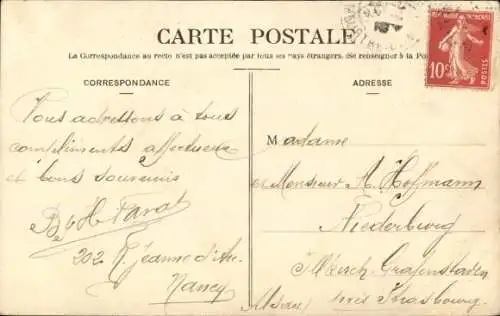 CARTE POSTALE
La Correspondance au recto n'est pas acceptée par tous les pays étrangers. (Se renseigner à la Po
CORRESPONDANCE
ADRESSE
10c
POSTES
Vous adressons à tous
compliments affectueux
et bons souvenirs
B et H Parat
202 R. Jeanne d'Arc
Nancy
Madame
et Monsieur A. Hoffmann
Niederburg
Illkirch Grafenstaden
près Strasbourg